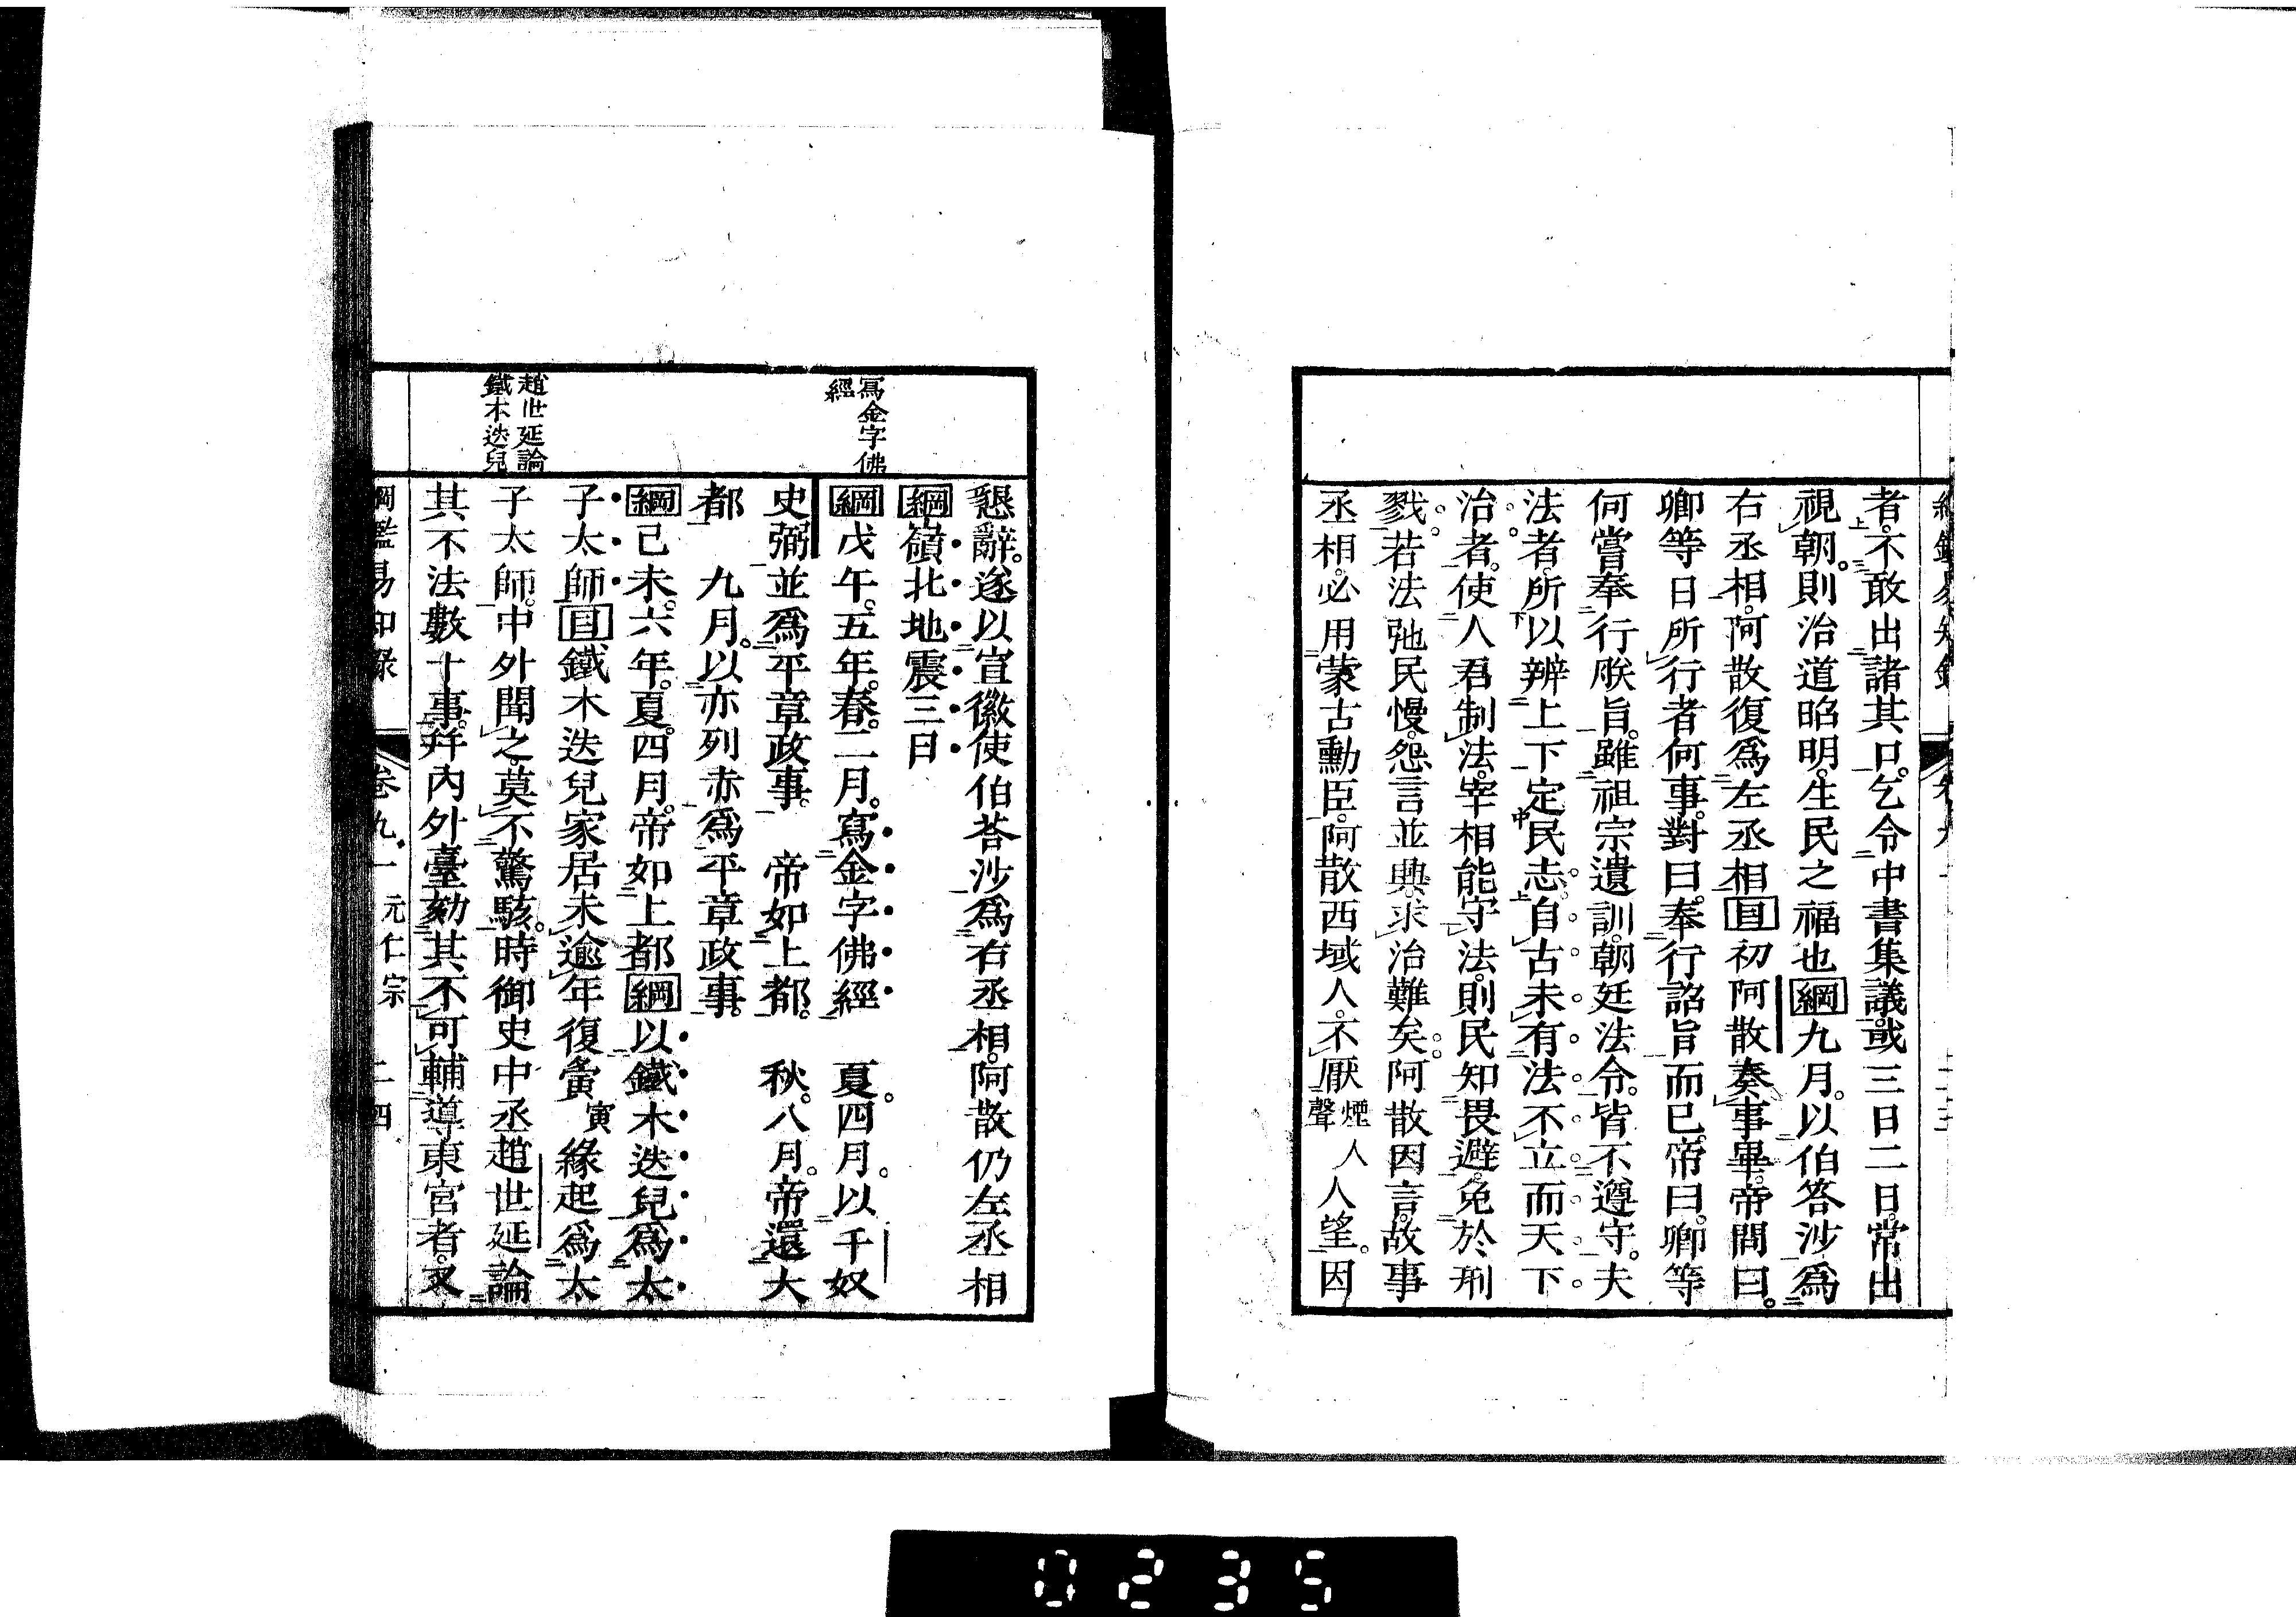 者。不敢出諸其口。乞令中書集議。或三日二日。常出
視朝。則治道昭明。生民之福也綱九月。以伯答沙爲
右丞相。阿散復爲左丞相目初阿散奏事畢。帝問曰。
卿等日所行者何事。對曰。奉行詔旨而已。帝曰。卿等
何嘗奉行朕旨。雖祖宗遺訓。朝廷法令。皆不遵守。夫
法者。所以辨上下定民志。自古未有法不立而天下
治者。使人君制法。宰相能守法。則民知畏避。免於刑
戮。若法弛民慢。怨言並興。求治難矣。阿散因言。故事
丞相。必用蒙古勳臣。阿散西域人。不厭煙聲人人望。因
懇辭。遂以宣徽使伯荅沙爲右丞相。阿散仍左丞相
綱嶺北地震三日
寫金字佛
經
綱戊午。五年。春。二月。寫金字佛經　夏。四月。以千奴
史弼並爲平章政事。　帝如上都。　秋。八月。帝還大
都　九月。以亦列赤爲平章政事。
綱己未。六年。夏。四月。帝如上都綱以鐵木迭兒爲太
子太師目鐵木迭兒家居未逾年復夤寅緣起爲太
趙世延論
鐵木迭兒
子太師。中外聞之。莫不驚駭。時御史中丞趙世延論
其不法數十事。幷內外臺劾其不可輔導東宮者。又
綱鑑易知錄　卷九一　元仁宗　二四
0235